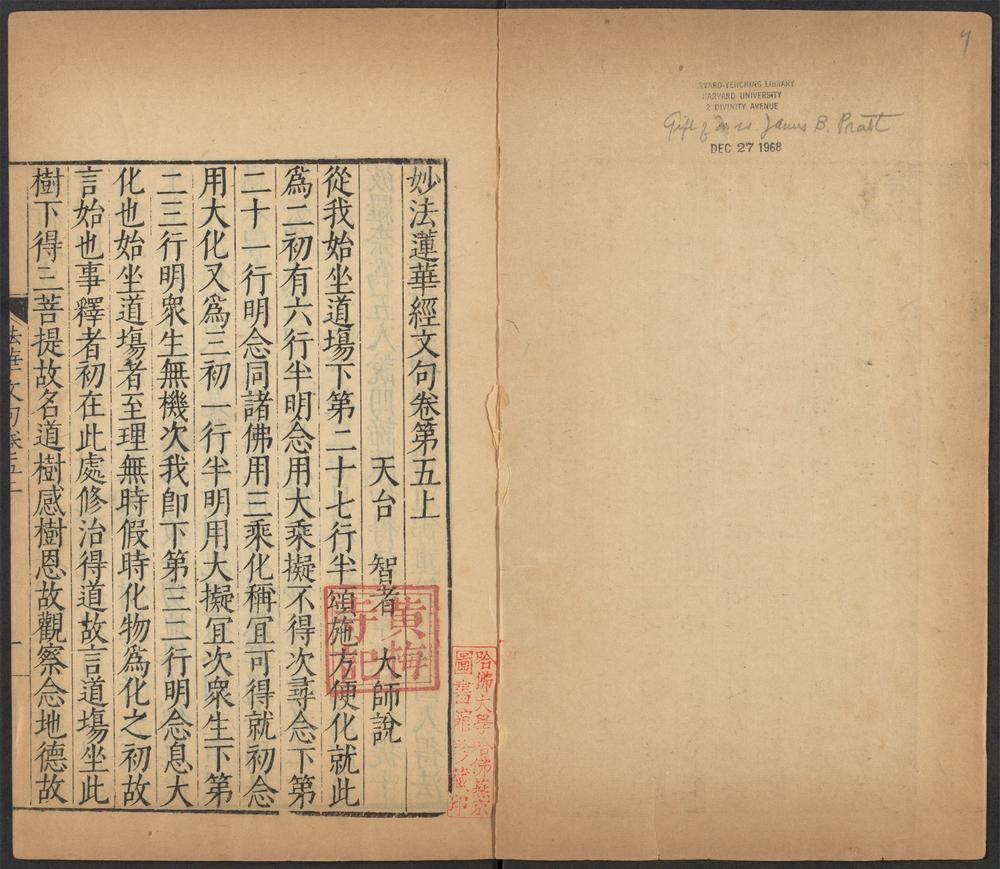 7
HARVARD-YENCHING LIBRARY
HARVARD UNIVERSITY
2 DIVINITY AVENUE
Gift of Mrs James B. Pratt
DEC 27 1968
妙法蓮華經文句卷第五上
天台 智者 大師說
從我始坐道塲下第二十七行半頌施方便化就此
爲二初有六行半明念用大乘擬不得次尋念下第
二十一行明念同諸佛用三乘化稱冝可得就初念
用大化又爲三初一行半明用大擬冝次衆生下第
二三行明衆生無機次我卽下第三二行明念息大
化也始坐道塲者至理無時假時化物爲化之初故
言始也事釋者初在此處修治得道故言道塲坐此
樹下得三菩提故名道樹感樹恩故觀察念地德故
法華文句卷五上
黃梅
寺記
哈佛大學哈佛燕京
圖書館珍藏印